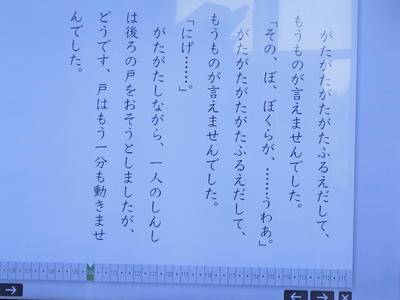 がたがたがたがたふるえだして、
もうものが言えませんでした。
「その、ぼ、ぼくらが、……うわあ。」
がたがたがたがたふるえだして、
もうものが言えませんでした。
「にげ……。」
がたがたしながら、一人のしんし
は後ろの戸をおそうとしましたが、
どうです、戸はもう一分も動きませ
んでした。